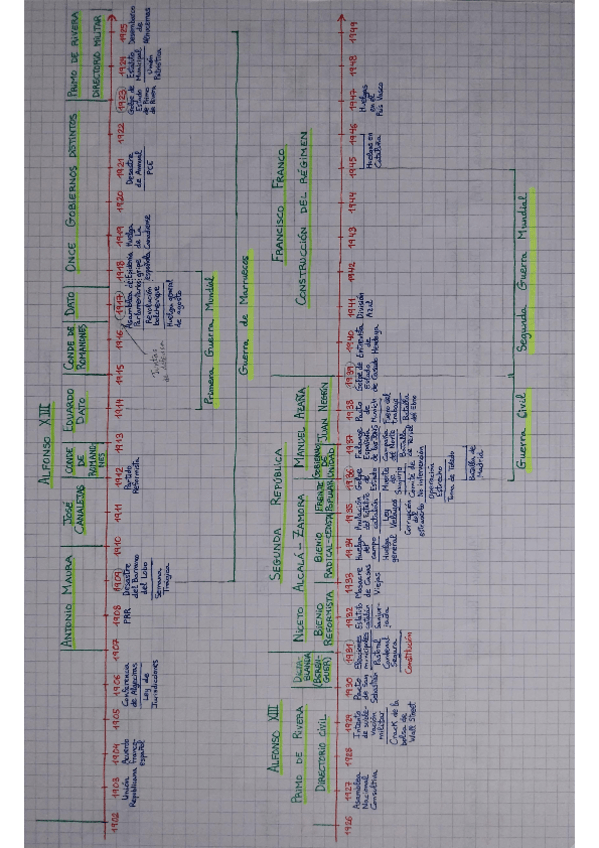 ALFONSO XIII
ANTONIO MAURA
JOSÉ CANALEJAS
CONDE DE ROMANONES
EDUARDO DATO
CONDE DE ROMANONES
DATO
ONCE GOBIERNOS DISTINTOS
PRIMO DE RIVERA
DIRECTORIO MILITAR
1902
1903
1904
1905
1906
1907
1908
1909
1910
1911
1912
1913
1914
1915
1916
1917
1918
1919
1920
1921
1922
1923
1924
1925
Unión
Republicana
Acuerdo
franco-
español
Conferencia
de Algeciras
Ley de
Jurisdicciones
PRR
Desastre
del Barranco
del Lobo
Semana
Trágica
Partido
Reformista
Juntas
de defensa
Asamblea de
Parlamentarios
Revolución
bolchevique
Huelga general
de agosto
Epidemia
gripe
española
Huelga
de La
Canadiense
Desastre
de Annual
PCE
Golpe de
Estado
de Primo
de Rivera
Estatuto
Municipal
Unión
Patriótica
Desembarco
de
Alhucemas
Primera Guerra Mundial
Guerra de Marruecos
ALFONSO XIII
PRIMO DE RIVERA
DIRECTORIO CIVIL
DICTA-
BLANDA
(BEREN-
GUER)
SEGUNDA REPÚBLICA
NICETO ALCALÁ-ZAMORA
MANUEL AZAÑA
BIENIO
REFORMISTA
BIENIO
RADICAL-CEDISTA
FRENTE
POPULAR
GOBIERNO
UNIDAD
JUAN NEGRÍN
FRANCISCO FRANCO
CONSTRUCCIÓN DEL RÉGIMEN
1926
1927
1928
1929
1930
1931
1932
1933
1934
1935
1936
1937
1938
1939
1940
1941
1942
1943
1944
1945
1946
1947
1948
1949
Asamblea
Nacional
Consultiva
Intento
de suble-
vación
militar
Crack de la
bolsa de
Wall Street
Pacto
de San
Sebastián
Elecciones
municipales
Pastoral
Cardenal
Segura
Constitución
Estatuto
catalán
Sanjur-
jada
Masacre
de Casas
Viejas
Huelga
del
campo
Huelga
general
Anulación
del Estatuto
catalán
Ley
Corrupción
del
estraperlo
Golpe de
Estado
Muerte
de
Sanjurjo
Comité de
No intervención
Operación
Estrecho
Toma de Toledo
Batalla de
Madrid
Falange
Española
de las JONS
Campaña
del Norte
Batalla
de Teruel
Pacto
de
Munich
Fuero del
trabajo
Batalla
del Ebro
Golpe de
Estado
de Casado
Entrevista
de
Hendaya
División
Azul
Huelgas en
Cataluña
Huelgas
en el
País Vasco
Guerra Civil
Segunda Guerra Mundial